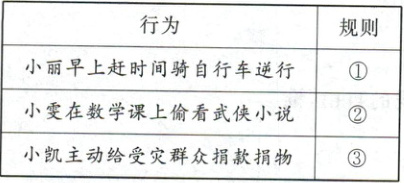 行为 规则
小丽早上赶时间骑自行车逆行 ①
小雯在数学课上偷看武侠小说 ②
小凯主动给受灾群众捐款捐物 ③